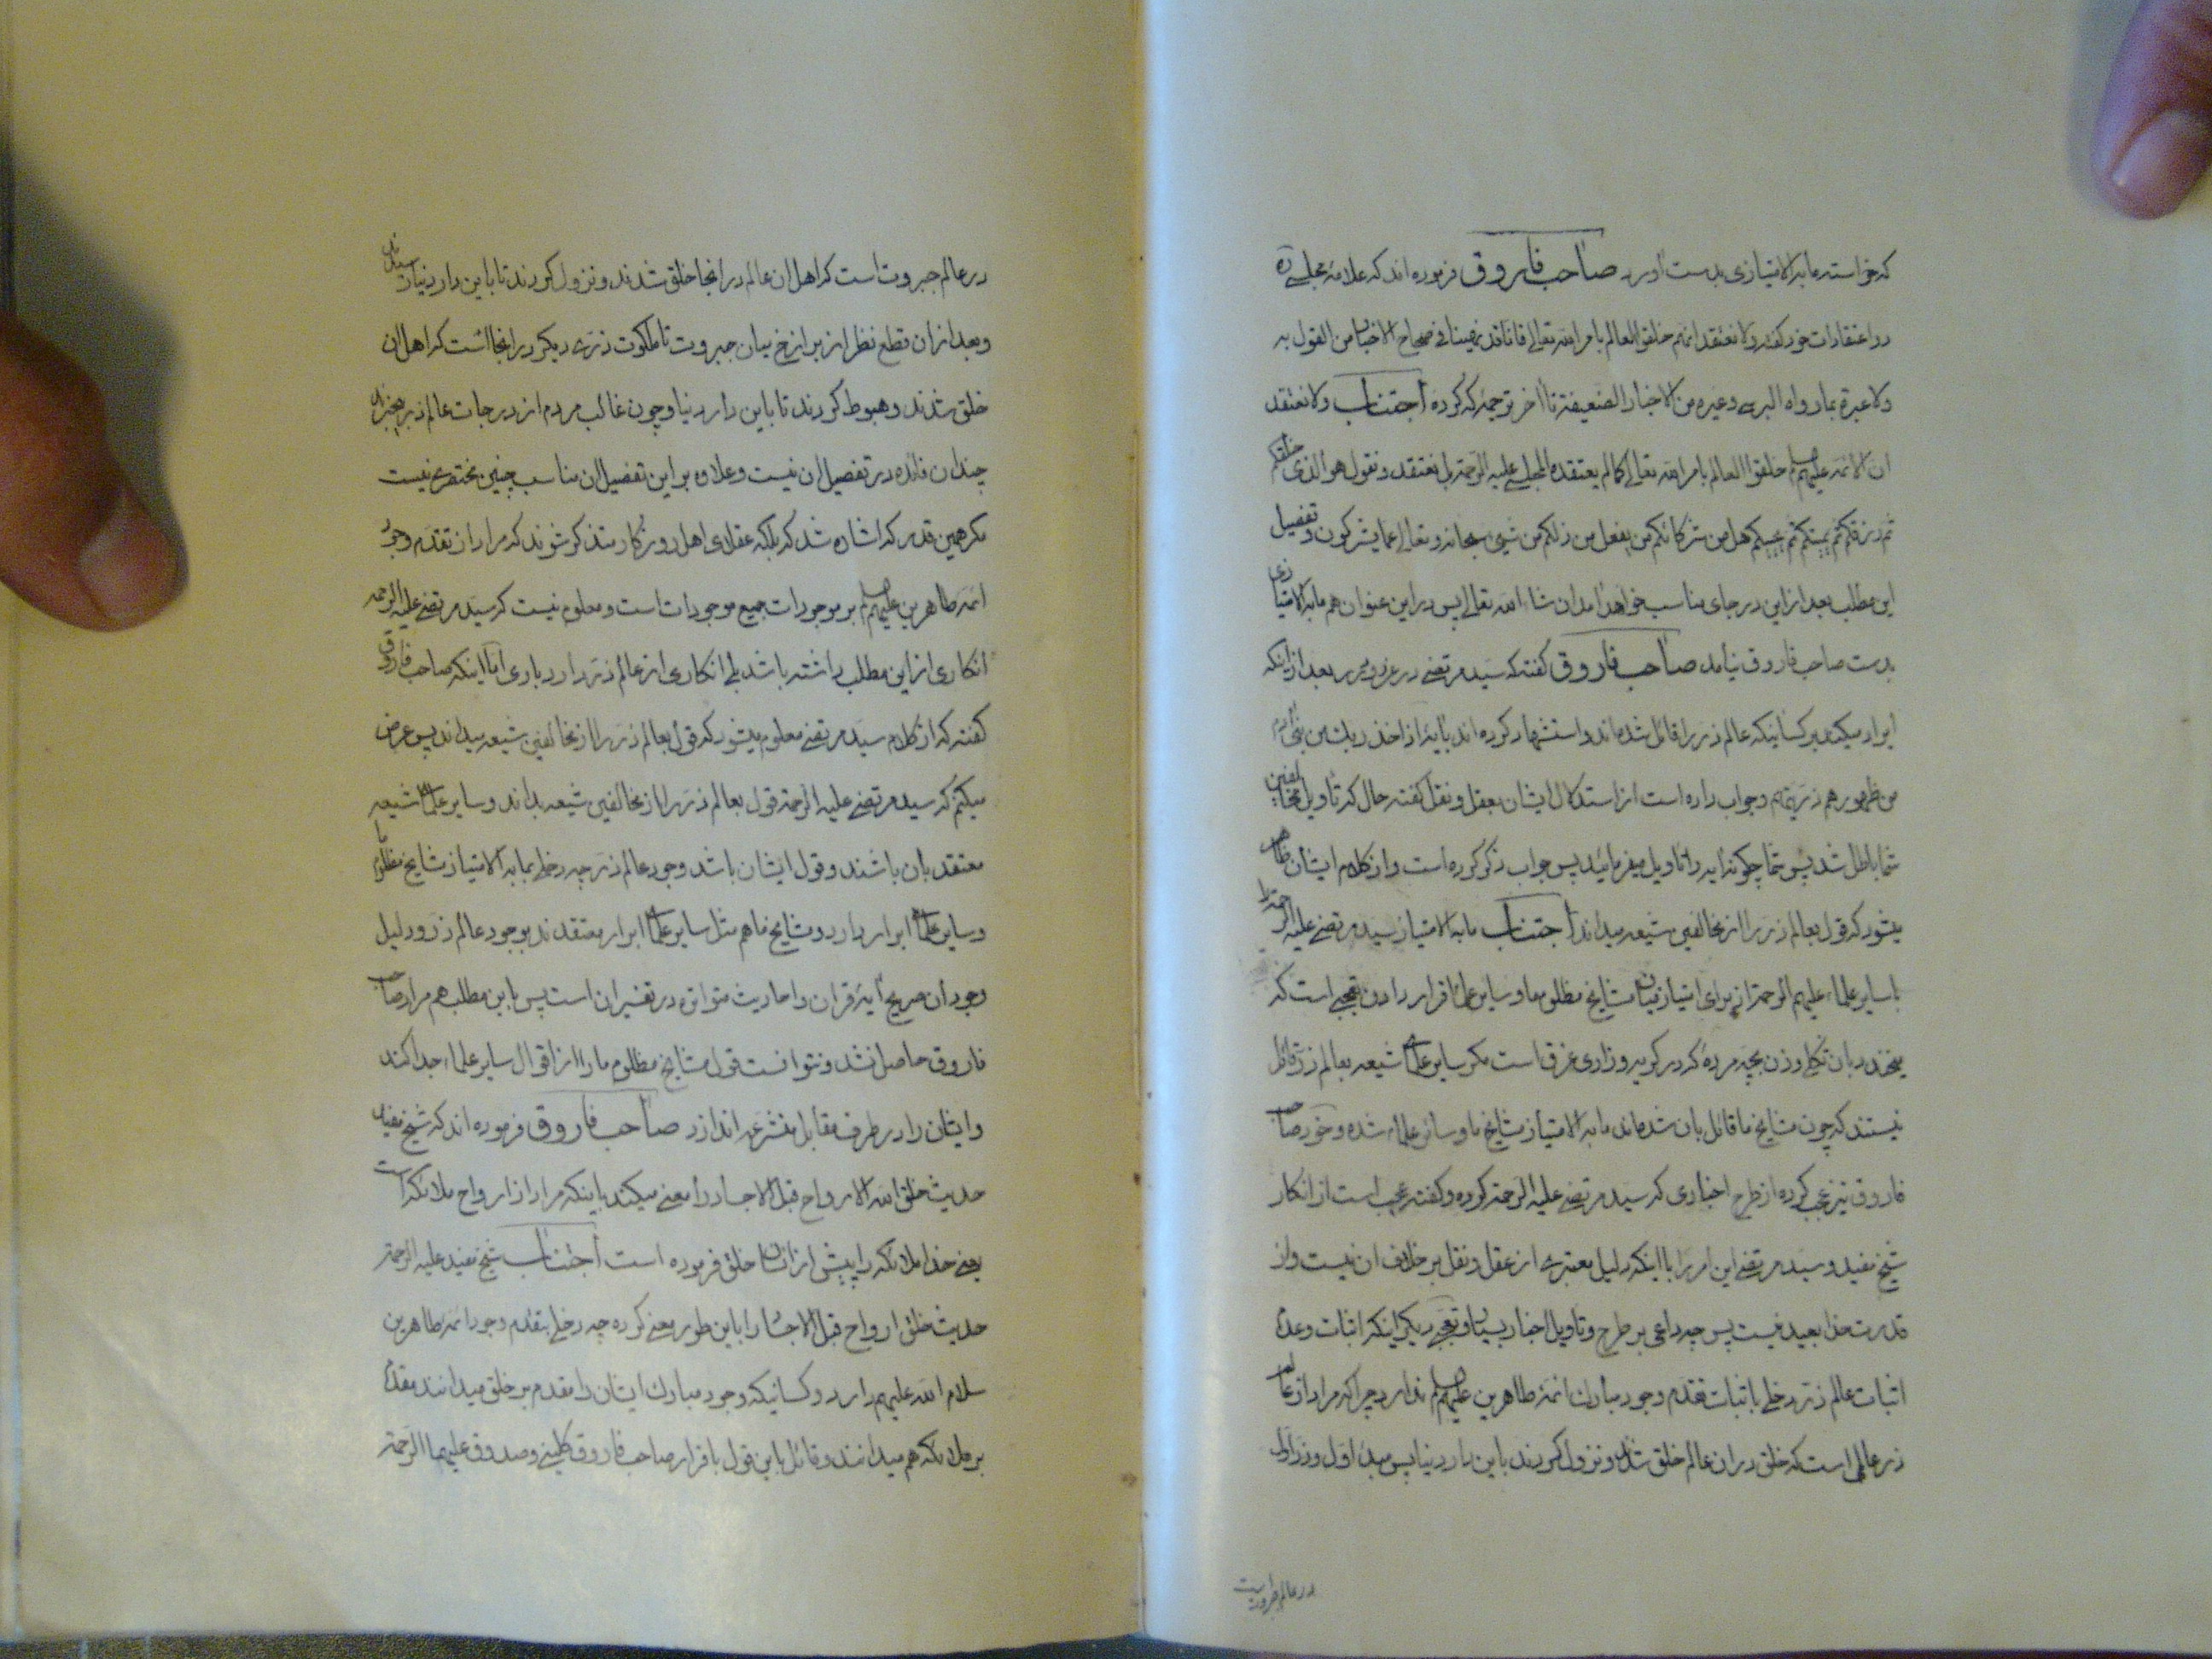 که خواسته مابه الامتیازی بدست اورد صاحب فاروق فرموده اند که علامهٔ مجلسی ره
در اعتقادات خود گفته و لا نعتقد انهم خلقوا العالم بامر الله تعالی فانا قد نهینا فی صحاح الاخبار من القول به
ولا عبرة بما رواه البرسی وغیره من الاخبار الضعیفة تا اخر ترجمهٔ که کرده اجتناب ولا نعتقد
ان الائمه علیهم خلقوا العالم بامر الله تعالی کما لم یعتقده المجلسی علیه الرحمة بل نعتقد ونقول هو الذی خلقکم
ثم رزقکم ثم یمیتکم ثم یحییکم هل من شرکائکم من یفعل من ذلکم من شیئ سبحانه وتعالی عما یشرکون وتفصیل
این مطلب بعد از این در جای مناسب خواهد امد ان شاء الله تعالی پس در این عنوان هم مابه الامتیازی
بدست صاحب فاروق نیامد صاحب فاروق گفته که سید مرتضی در غرر ودرر بعد از اینکه
ایراد میکند بر کسانیکه عالم ذر را قائل شده اند واستشهاد کرده اند بایهٔ اذ اخذ ربک من بنی ادم
من ظهورهم ذریتهم وجواب داده است از استدلال ایشان بعقل ونقل گفته حال که تاویل مخالفین
شما باطل شد پس شما چگونه ایه را تاویل میفرمائید پس جواب ذکر کرده است واز کلام ایشان ظاهر
میشود که قول بعالم ذر را از مخالفین شیعه میداند اجتناب مابه الامتیاز سید مرتضی علیه الرحمة را
با سایر علماء علیهم الرحمة از برای امتیاز میان مشایخ مظلوم ما وسایر علما قرار دادن تعجبی است که
میخنداند بان ثکلی وزن بچه مرده که در گریه وزاری غرق است مگر سایر علماء شیعه بعالم ذر قائل
نیستند که چون مشایخ ما قائل بان شده اند مابه الامتیاز مشایخ ما وسائر علماء شده وخود صاحب
فاروق نیز تعجب کرده از طرح اخباری که سید مرتضی علیه الرحمة کرده وگفته عجب است از انکار
شیخ مفید وسید مرتضی این امر را با اینکه دلیل معتبری از عقل ونقل بر خلاف ان نیست واز
قدرت خدا بعید نیست پس چه داعی بر طرح وتاویل اخبار بسیار وتعجب دیگر اینکه اثبات وعدم
اثبات عالم ذر دخلی باثبات تقدم وجود مبارک ائمهٔ طاهرین علیهم ندارد چرا که مراد از عالم
ذر عالمی است که خلق در ان عالم خلق شدند ونزول کردند باین دار دنیا پس مبدء اول وذر اول
در عالم جبروت است
در عالم جبروت است که اهل ان عالم در انجا خلق شدند ونزول کردند تا باین دار دنیا رسیدند
وبعد از ان قطع نظر از برازخ میان جبروت تا ملکوت ذری دیگر در انجا است که اهل ان
خلق شدند وهبوط کردند تا باین دار دنیا وچون غالب مردم از درجات عالم ذر بیخبرند
چندان فائده در تفصیل ان نیست وعلاوه بر این تفصیل ان مناسب چنین مختصری نیست
مگر همین قدر که اشاره شد که بلکه عقلای اهل روزگار متذکر شوند که مراد از تقدم وجود
ائمه طاهرین علیهم بر موجودات جمیع موجودات است ومعلوم نیست که سید مرتضی علیه الرحمه
انکاری از این مطلب داشته باشد بلی انکاری از عالم ذر دارد باری اما اینکه صاحب فاروق
گفته که از کلام سید مرتضی معلوم میشود که قول بعالم ذر را از مخالفین شیعه میداند پس عرض
میکنم که سید مرتضی علیه الرحمة قول بعالم ذر را از مخالفین شیعه بداند وسایر علماء شیعه
معتقد بان باشند وقول ایشان باشد وجود عالم ذر چه دخلی بمابه الامتیاز مشایخ مظلوم ما
وسایر علماء ابرار دارد ومشایخ ما هم مثل سایر علماء ابرار معتقدند بوجود عالم ذر ودلیل
وجود ان صریح ایهٔ قران واحادیث متواتره در تفسیر ان است پس باین مطلب هم مراد صاحب
فاروق حاصل نشد ونتوانست قول مشایخ مظلوم ما را از اقوال سایر علماء جدا کند
وایشان را در طرف مقابل متشرعه اندازد صاحب فاروق فرموده اند که شیخ مفید
حدیث خلق الله الارواح قبل الاجساد را معنی میکند باینکه مراد از ارواح ملائکه است
یعنی خدا ملائکه را پیش از انسان خلق فرموده است اجتناب شیخ مفید علیه الرحمة
حدیث خلق ارواح قبل الاجساد را باین طور معنی کرده چه دخلی بتقدم وجود ائمهٔ طاهرین
سلام الله علیهم دارد وکسانیکه وجود مبارک ایشان را مقدم بر خلق میدانند مقدم
بر ملائکه هم میدانند وقائل باین قول باقرار صاحب فاروق کلینی وصدوق علیهما الرحمة